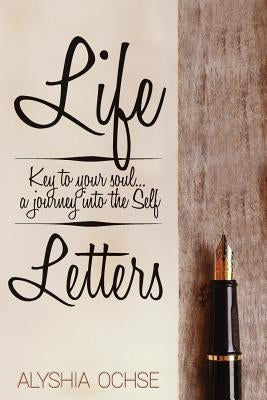 Life
Key to your soul...
a journey into the Self
Letters
ALYSHIA OCHSE